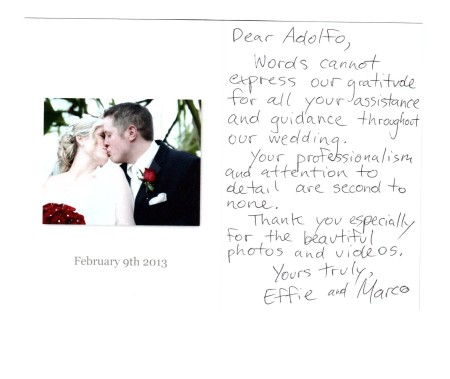 Dear Adolfo,
Words cannot
express our gratitude
for all your assistance
and guidance throughout
our wedding.
Your professionalism
and attention to
detail are second to
none.
Thank you especially
for the beautiful
photos and videos.
Yours truly,
Effie and Marco
February 9th 2013